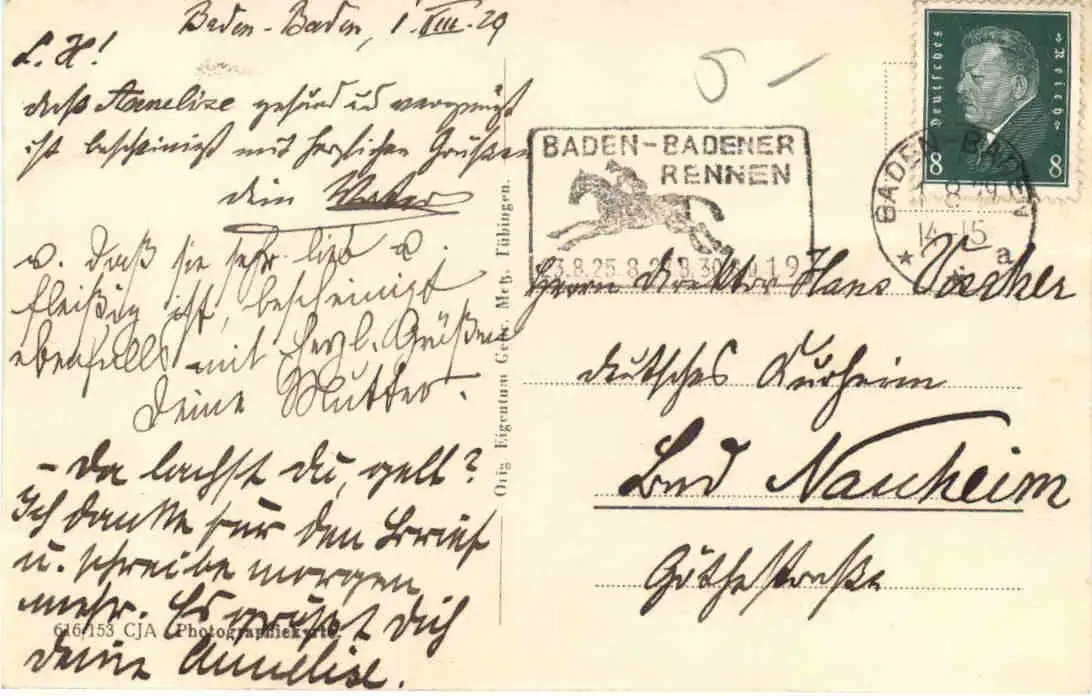 Baden-Baden, 1. VIII. 29
L. H!
daß Annelise gesund und vergnügt
ist bescheinigt mit herzlichen Grüßen
dein Vater
u. daß sie sehr lieb u.
fleißig ist, bescheinigt
ebenfalls mit herzl. Grüßen
Deine Mutter.
- Da lachst Du, gelt?
Ich danke für den Brief
u. schreibe morgen
mehr. Es grüßt Dich
deine Annelise.
616/153 CJA Photographiekarte.
Orig. Eigentum Gebr. Metz, Tübingen.
5 -
BADEN-BADENER
RENNEN
Deutsches Reich
8 8
BADEN-BADEN
8 29
14-15
* * a
Herrn Direktor Hans
Deutsches Kurheim
Bad Nauheim
Göthestraße